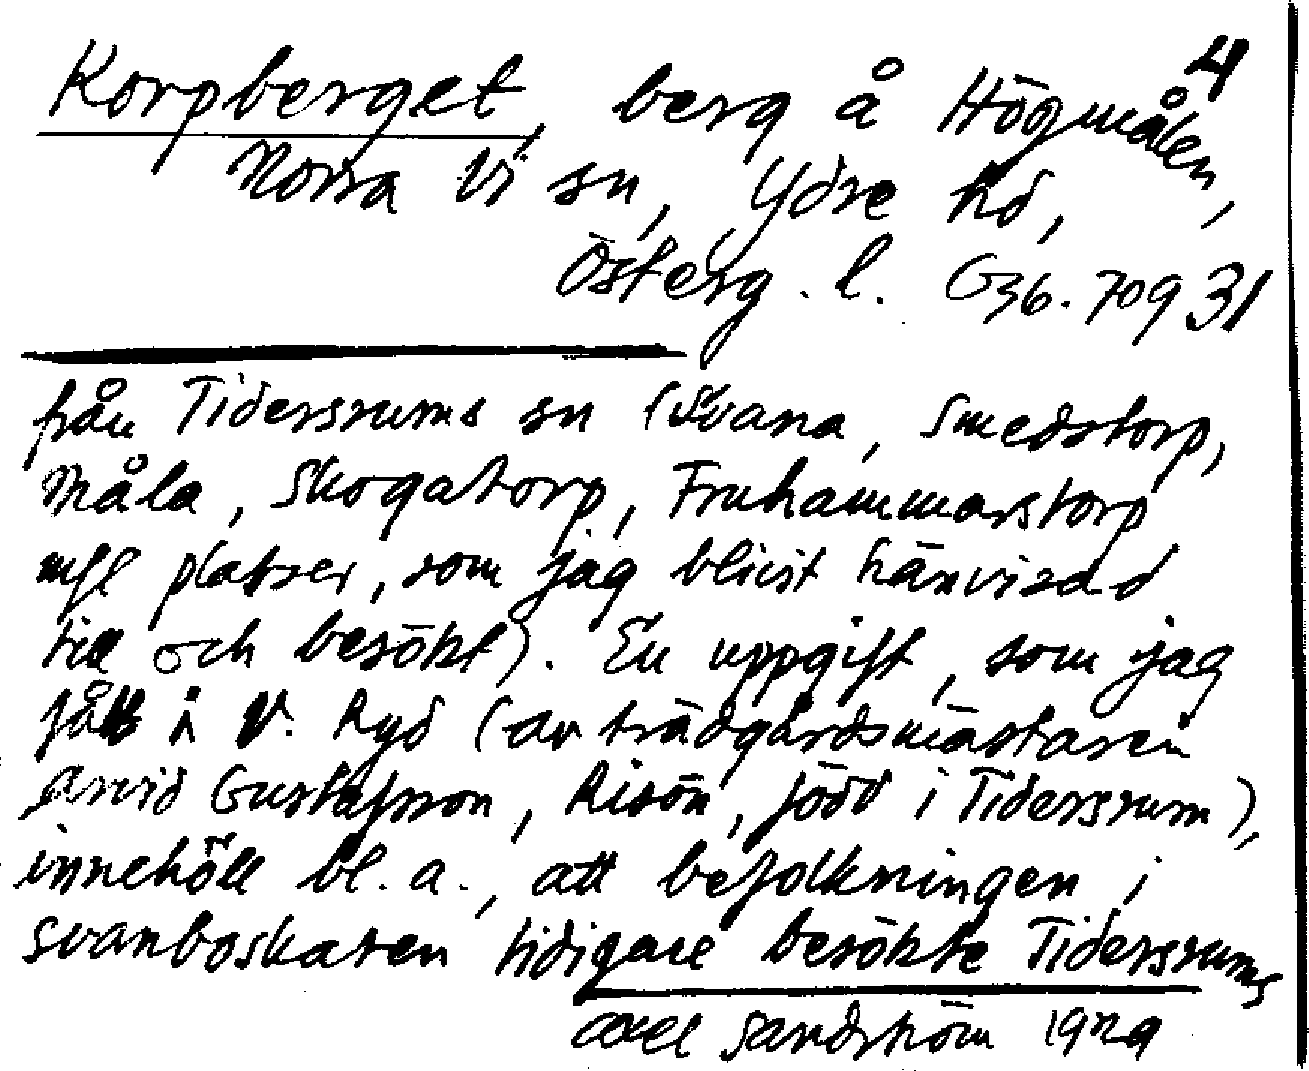 4
Korpberget, berg å Högmålen,
Norra Vi sn, Ydre hd,
Österg. l. G36.709 31
från Tidersrums sn (Svana, Smedstorp,
Måla, Skogatorp, Fruhammarstorp
mfl platser, som jag blivit hänvisad
till och besökt). En uppgift, som jag
fått i V. Ryd (av trädgårdsmästaren
Arvid Gustafsson, Risön, född i Tidersrum),
innehöll bl. a., att befolkningen i
svanboskaten tidigare besökte Tidersrums
Axel Sandström 1929